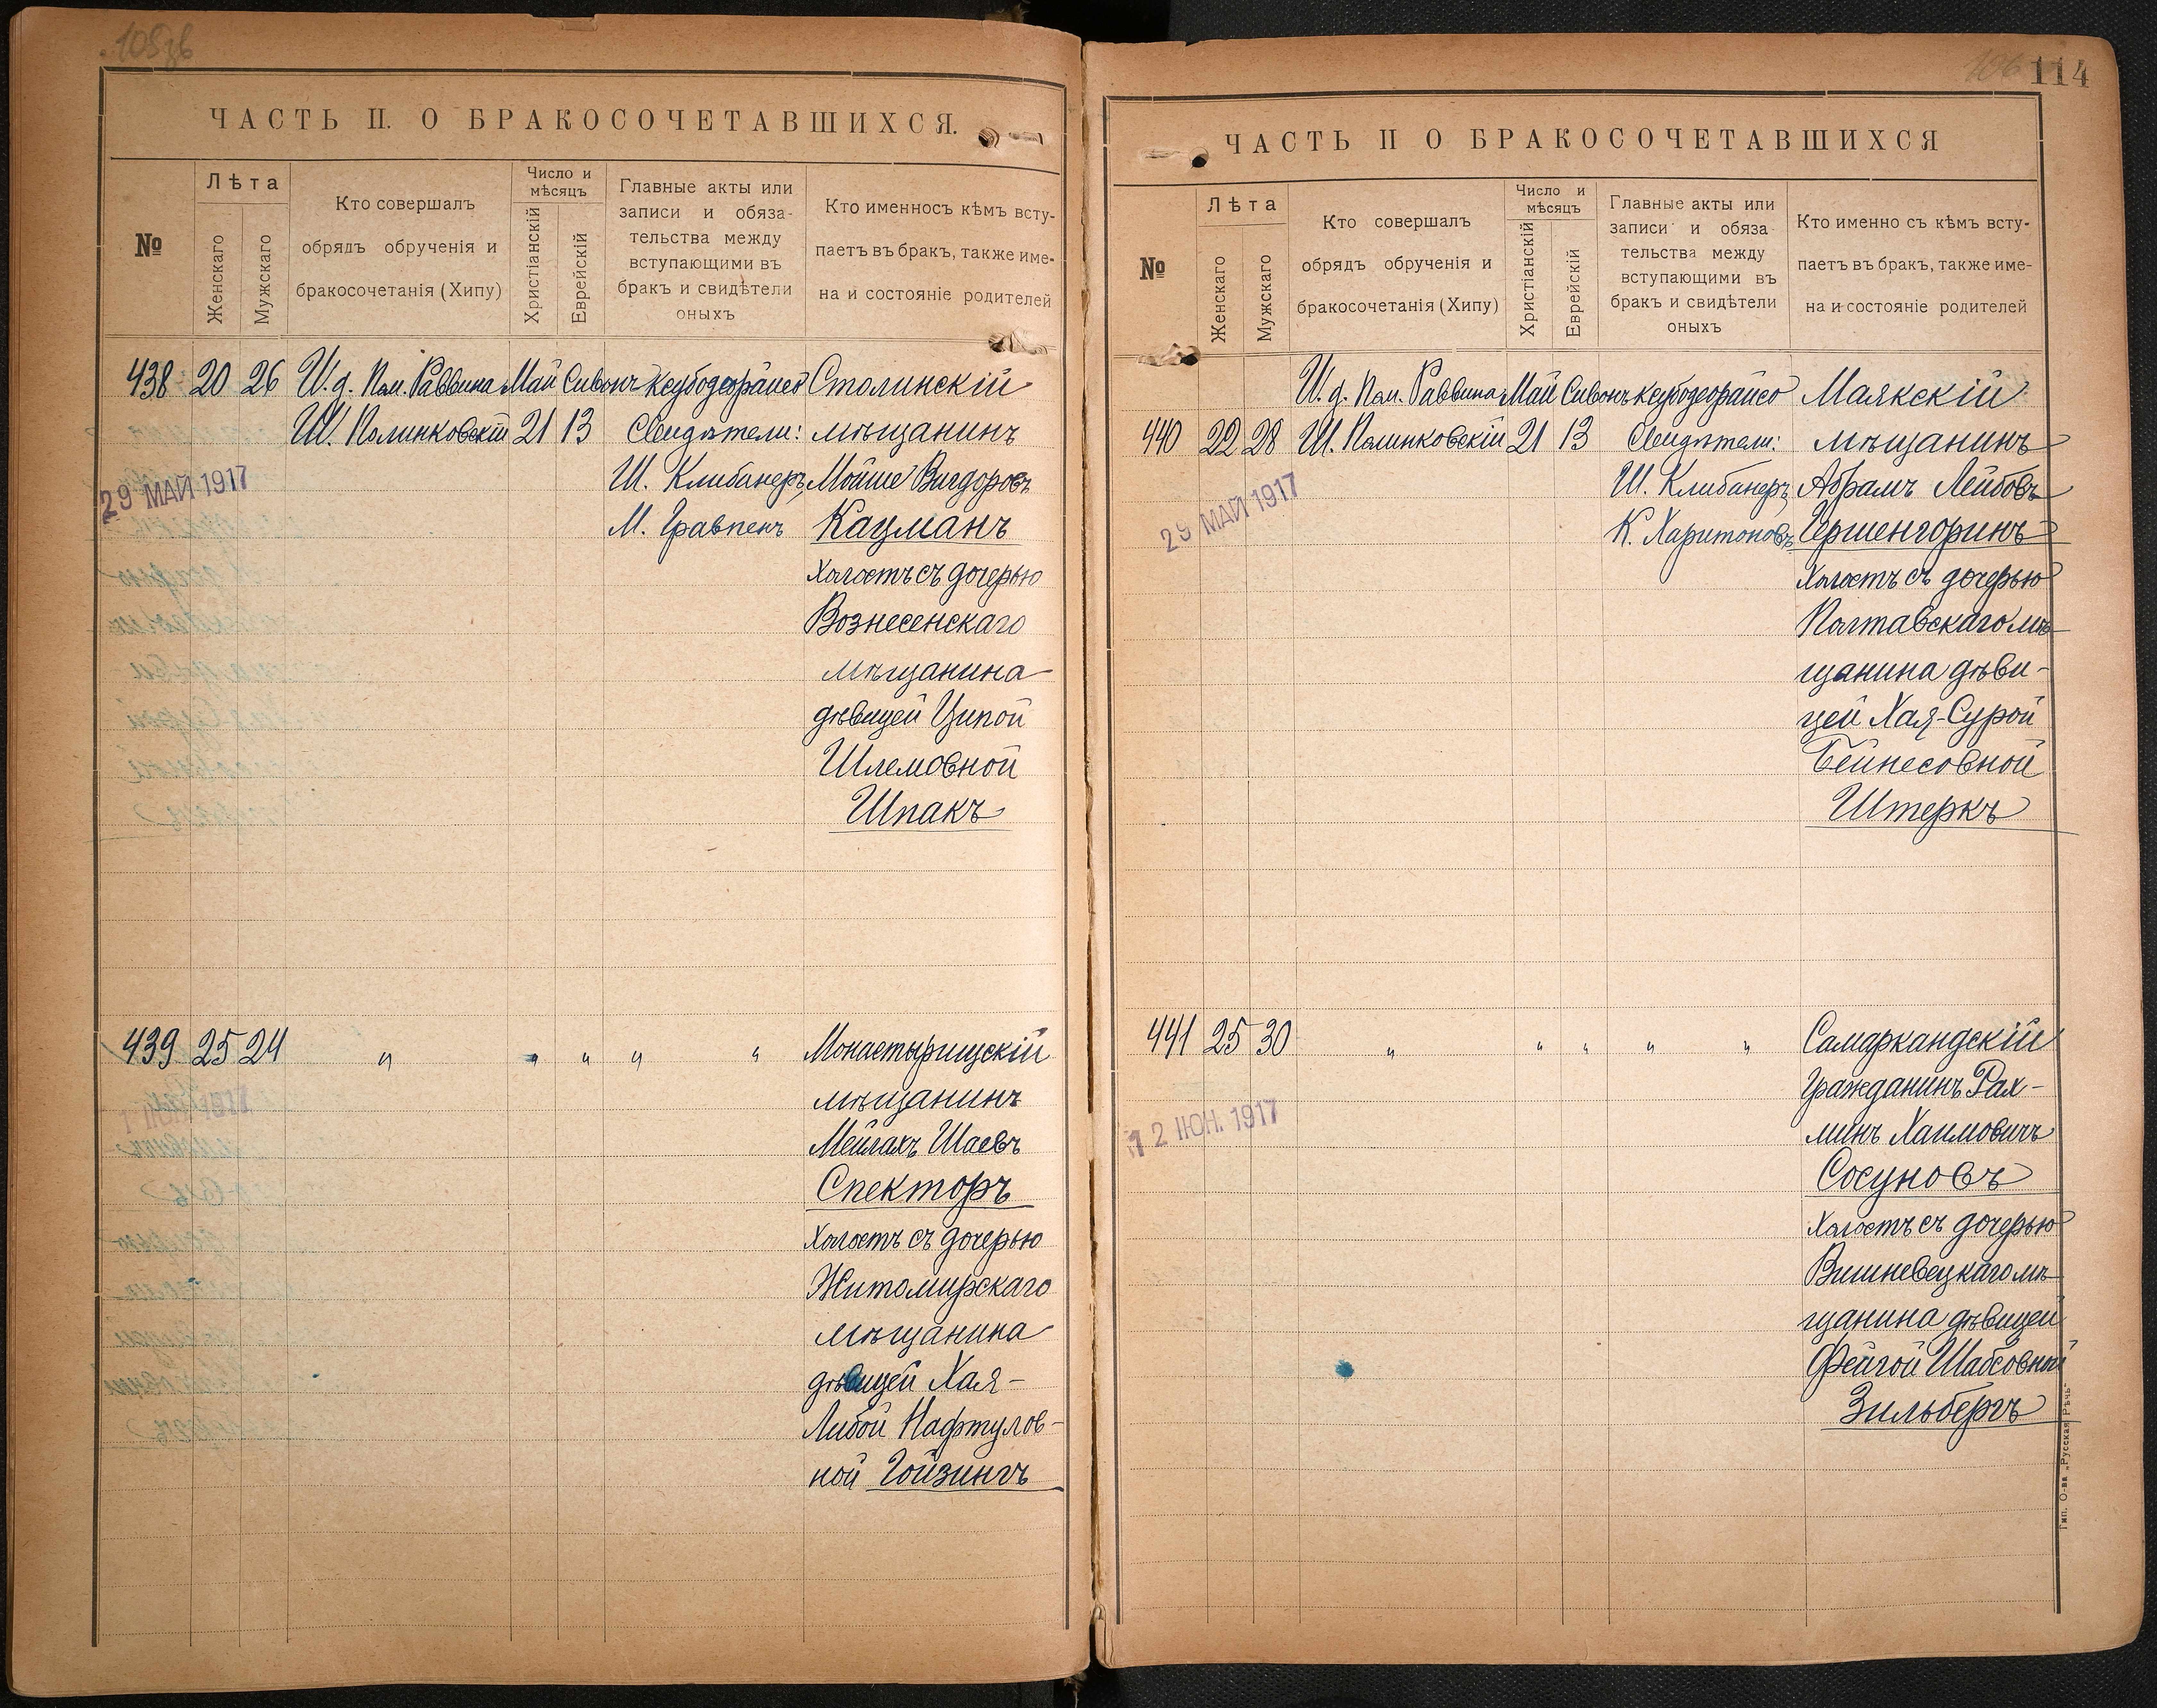 105 об
ЧАСТЬ II. О БРАКОСОЧЕТАВШИХСЯ.
№
Лѣта
Женскаго
Мужскаго
Кто совершалъ
обрядъ обрученія и
бракосочетанія (Хипу)
Число и
мѣсяцъ
Христіанскій
Еврейскій
Главные акты или
записи и обяза-
тельства между
вступающими въ
бракъ и свидѣтели
оныхъ
Кто именносъ кѣмъ всту-
паетъ въ бракъ, также име-
на и состояніе родителей
438 20 26 И. д. Пом. Раввина Май Сивонъ Ксубодеорайсо Столинскій
Ш. Полинковскій 21 13 Свидѣтели: мѣщанинъ
Ш. Клибанеръ, Мойше Вигдоровъ
29 МАЙ 1917
М. Гравпенъ Кацманъ
Холостъ съ дочерью
Вознесенскаго
мѣщанина
дѣвицей Ципой
Шлемовной
Шпакъ
439 25 24 " " " " " Монастырищскій
мѣщанинъ
1 ІЮН. 1917
Мейлахъ Шаевъ
Спекторъ
Холостъ съ дочерью
Житомирскаго
мѣщанина
дѣвицей Хая-
Либой Нафтулов-
ной Гойзингъ
106 114
ЧАСТЬ II О БРАКОСОЧЕТАВШИХСЯ
№
Лѣта
Женскаго
Мужскаго
Кто совершалъ
обрядъ обрученія и
бракосочетанія (Хипу)
Число и
мѣсяцъ
Христіанскій
Еврейскій
Главные акты или
записи и обяза-
тельства между
вступающими въ
бракъ и свидѣтели
оныхъ
Кто именно съ кѣмъ всту-
паетъ въ бракъ, также име-
на и состояніе родителей
И. д. Пом. Раввина Май Сивонъ Ксубодеорайсо Маякскій
440 22 28 Ш. Полинковскій 21 13 Свидѣтели: мѣщанинъ
Ш. Клибанеръ, Абрамъ Лейбовъ
29 МАЙ 1917
К. Харитоновъ, Гершенгоринъ
Холостъ съ дочерью
Полтавскаго мѣ-
щанина дѣви-
цей Хая-Сурой
Бейнесовной
Штеркъ
441 25 30 " " " " " Самаркандскій
Гражданинъ Рах-
12 ІЮН. 1917
минъ Хаимовичъ
Сосуновъ
Холостъ съ дочерью
Вишневецкаго мѣ-
щанина дѣвицей
Фейгой Шабсовной
Зильбергъ
Тип. О-ва „Русская Рѣчь"